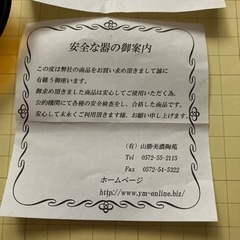 安全な器の御案内
この度は弊社の商品をお買い求め頂きまして誠に
有難う御座います。
御求め頂きました商品は安心してご使用いただく為、
公的機関にて各種の安全検査をし、合格した商品です。
安心して末永くご利用頂きます様、お願い申し上げます。
(有) 山勝美濃陶苑
Tel 0572-55-2115
Fax 0572-54-5322
ホームページ
http://www.ym-online.biz/